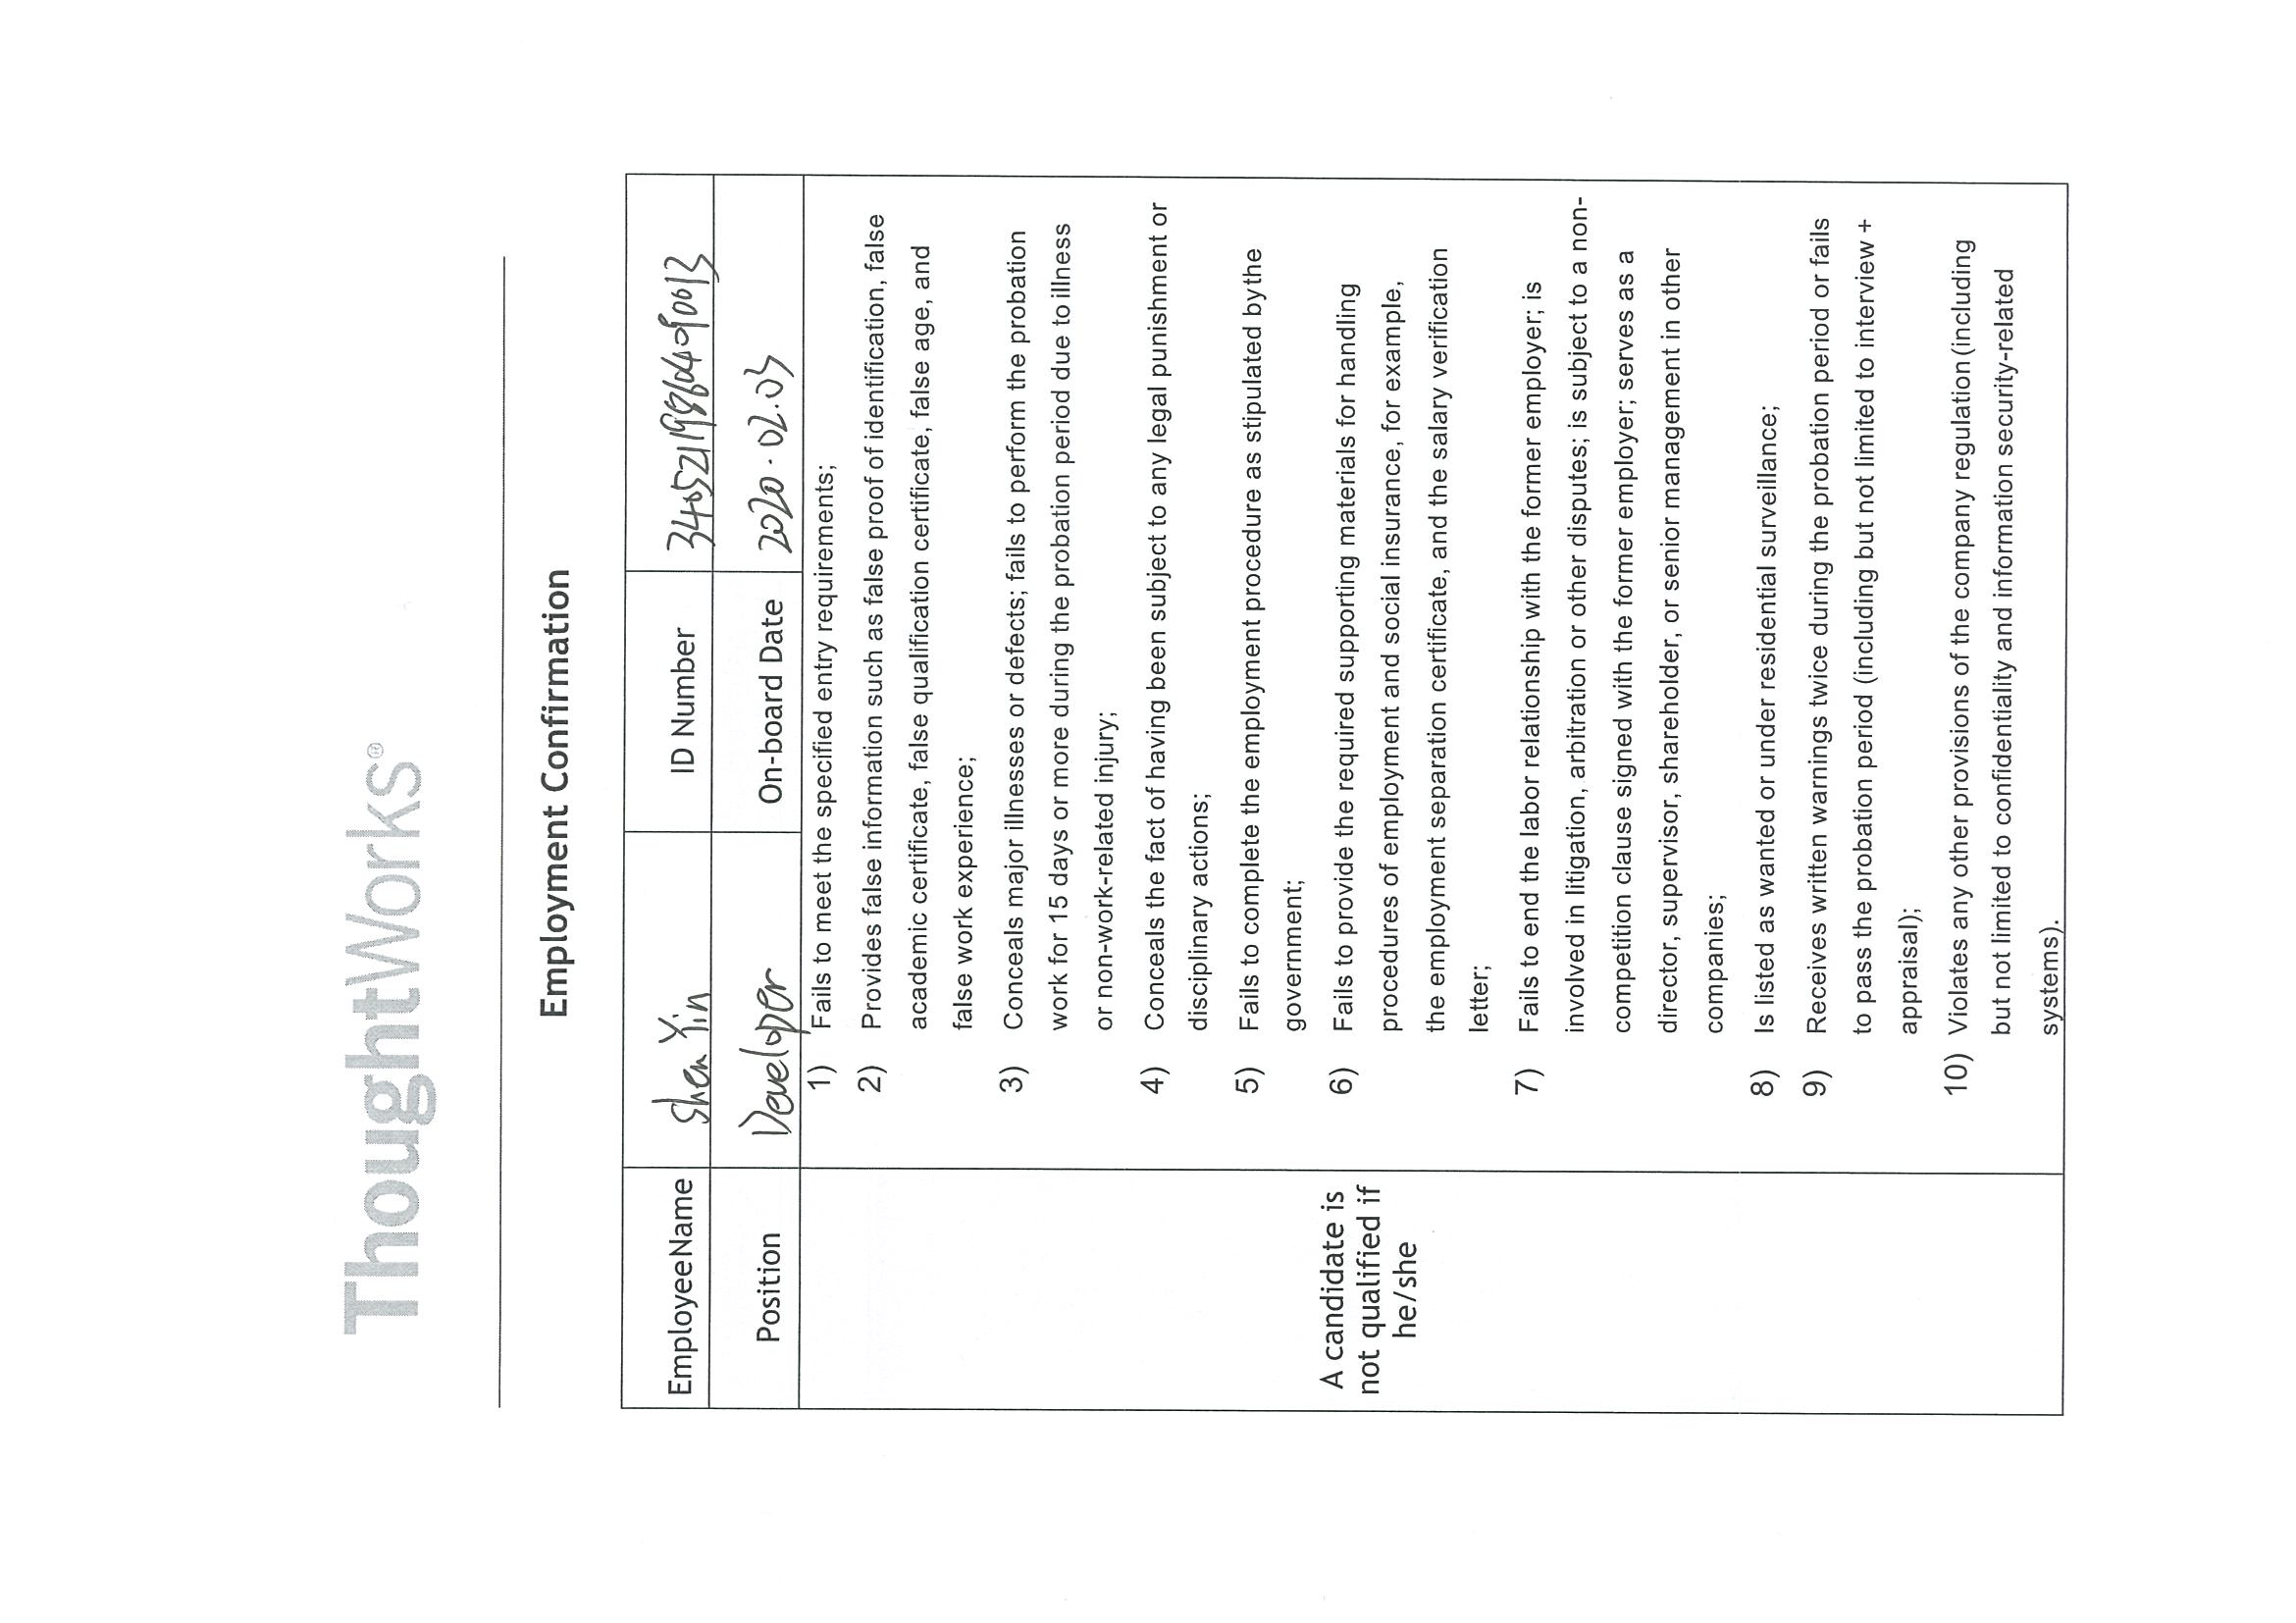 ThoughtWorks®
Employment Confirmation
EmployeeName Shen Yin ID Number 340521198604090013
Position Developer On-board Date 2020.02.03
A candidate is
not qualified if
he/she
1) Fails to meet the specified entry requirements;
2) Provides false information such as false proof of identification, false
academic certificate, false qualification certificate, false age, and
false work experience;
3) Conceals major illnesses or defects; fails to perform the probation
work for 15 days or more during the probation period due to illness
or non-work-related injury;
4) Conceals the fact of having been subject to any legal punishment or
disciplinary actions;
5) Fails to complete the employment procedure as stipulated bythe
government;
6) Fails to provide the required supporting materials for handling
procedures of employment and social insurance, for example,
the employment separation certificate, and the salary verification
letter;
7) Fails to end the labor relationship with the former employer; is
involved in litigation, arbitration or other disputes; is subject to a non-
competition clause signed with the former employer; serves as a
director, supervisor, shareholder, or senior management in other
companies;
8) Is listed as wanted or under residential surveillance;
9) Receives written warnings twice during the probation period or fails
to pass the probation period (including but not limited to interview +
appraisal);
10) Violates any other provisions of the company regulation (including
but not limited to confidentiality and information security-related
systems).